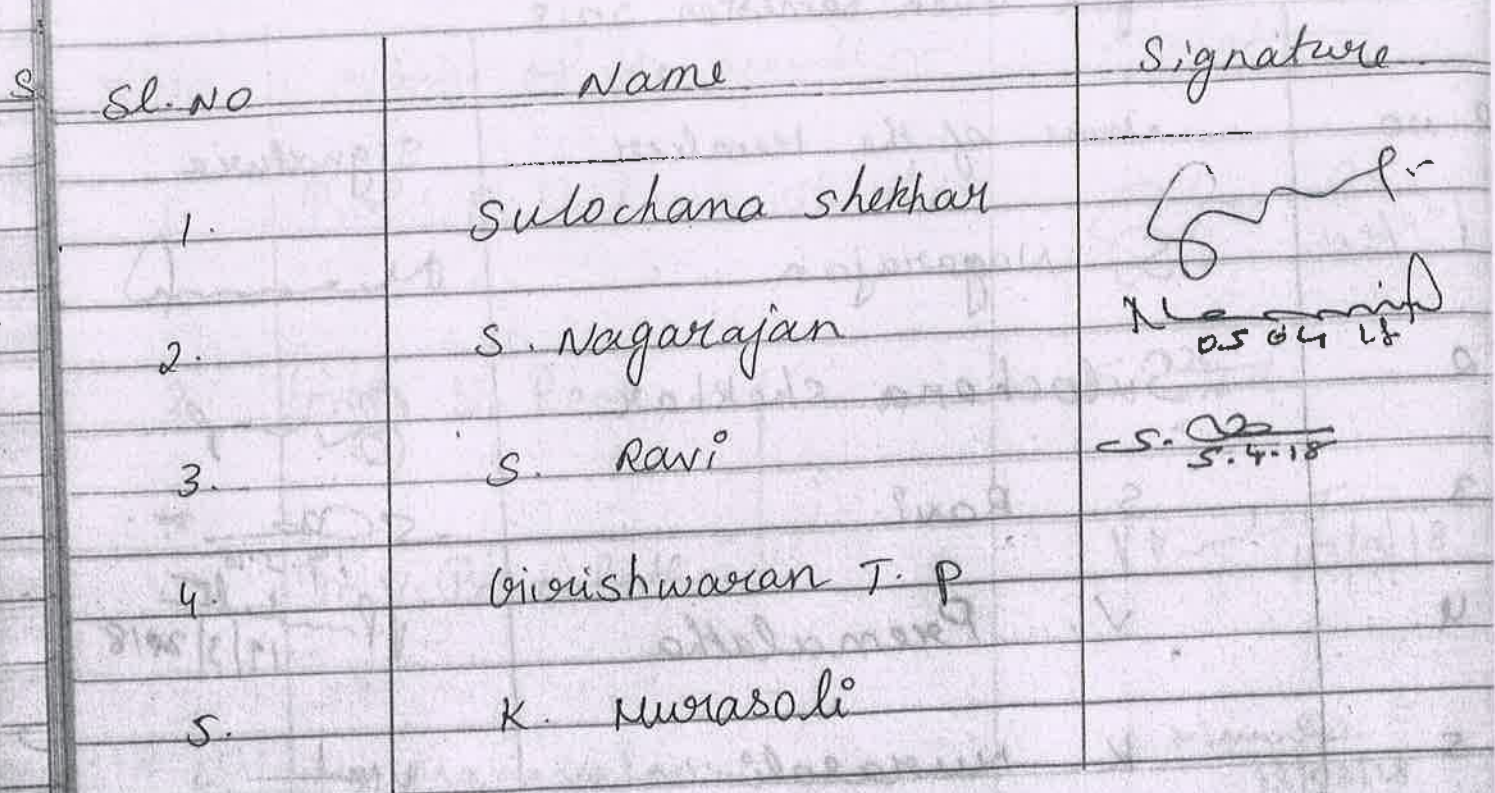 Sl.No Name Signature
1. Sulochana Shekhar
2. S. Nagarajan
05 04 18
3. S. Ravi S.
5.4.18
4. Girishwaran T. P
5. K. Murasoli